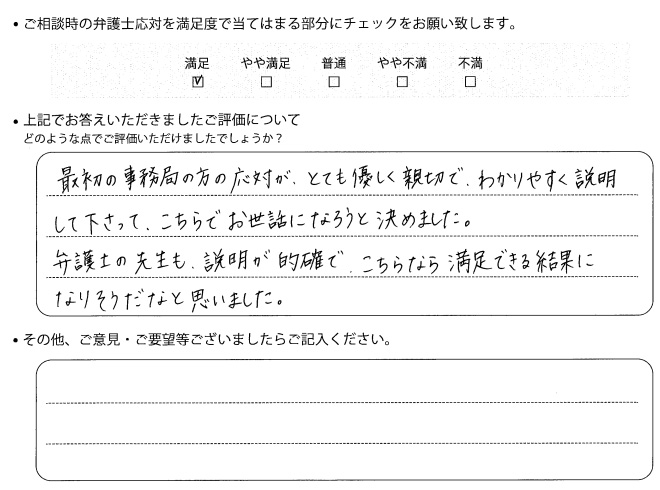 • ご相談時の弁護士応対を満足度で当てはまる部分にチェックをお願い致します。
満足 やや満足 普通 やや不満 不満
☑ □ □ □ □
• 上記でお答えいただきましたご評価について
どのような点でご評価いただけましたでしょうか？
最初の事務局の方の応対が、とても優しく親切で、わかりやすく説明
して下さって、こちらでお世話になろうと決めました。
弁護士の先生も、説明が的確で、こちらなら満足できる結果に
なりそうだなと思いました。
• その他、ご意見・ご要望等ございましたらご記入ください。